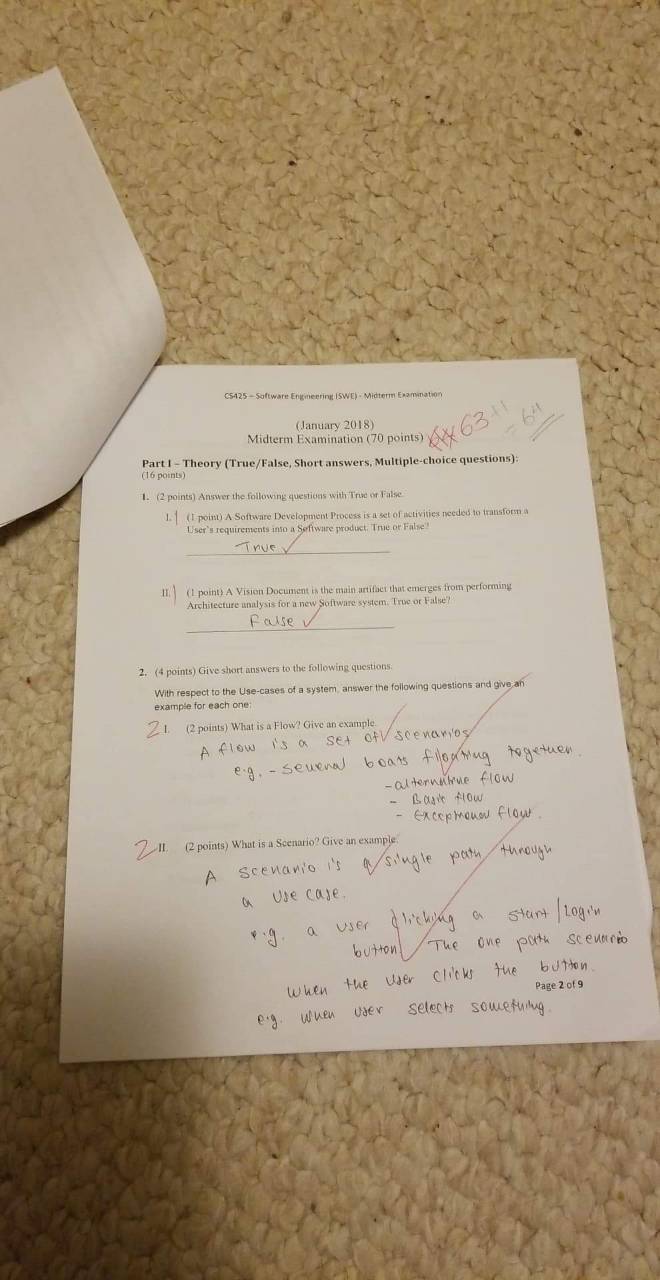 CS425 – Software Engineering (SWE) - Midterm Examination
(January 2018)
Midterm Examination (70 points) 63 +1
= 64
Part I – Theory (True/False, Short answers, Multiple-choice questions):
(16 points)
1. (2 points) Answer the following questions with True or False.
I. 1 (1 point) A Software Development Process is a set of activities needed to transform a
User's requirements into a Software product. True or False?
True ✓
II. 1 (1 point) A Vision Document is the main artifact that emerges from performing
Architecture analysis for a new Software system. True or False?
False ✓
2. (4 points) Give short answers to the following questions.
With respect to the Use-cases of a system, answer the following questions and give an
example for each one:
2 I. (2 points) What is a Flow? Give an example.
A flow is a set of scenarios
e.g. - several boats floating together.
- alternative flow
- Basic flow
- Exceptional flow.
2 II. (2 points) What is a Scenario? Give an example.
A scenario is a single path through
a use case.
e.g. a user clicking a start/login
button. The one path scenario
when the user clicks the button.
Page 2 of 9
e.g. when user selects something.